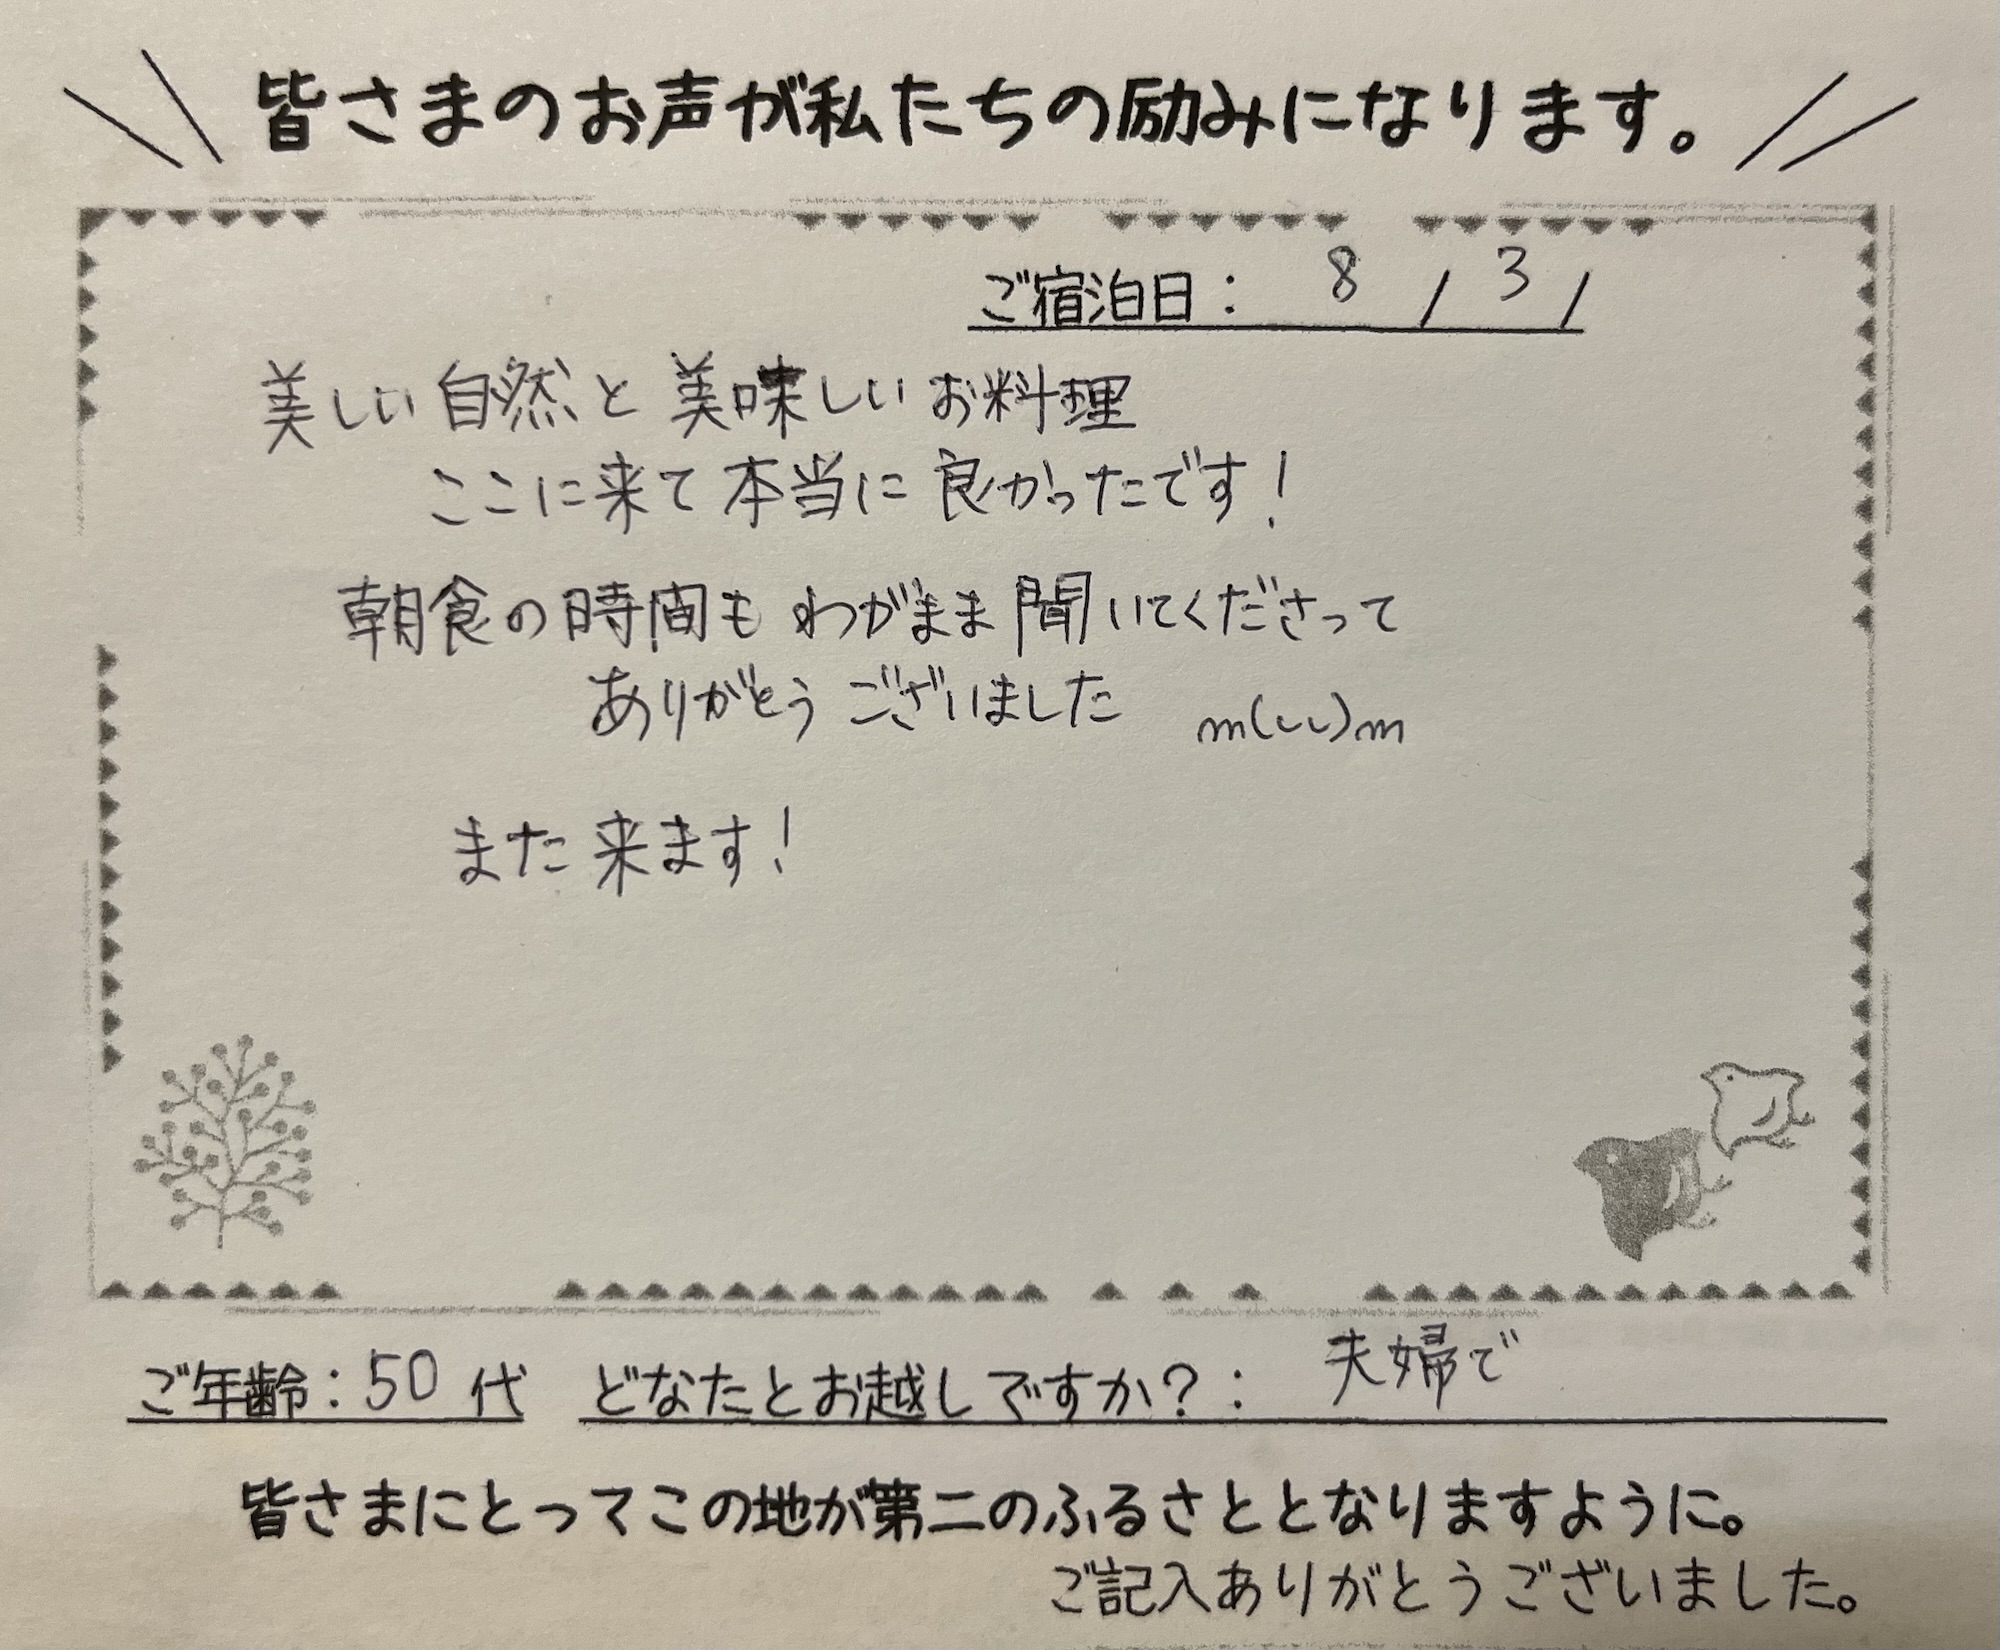 皆さまのお声が私たちの励みになります。
ご宿泊日： 8 / 3 /
美しい自然と美味しいお料理
ここに来て本当に良かったです！
朝食の時間もわがまま聞いてくださって
ありがとうございました m(_ _)m
また来ます！
ご年齢：50代 どなたとお越しですか？： 夫婦で
皆さまにとってこの地が第二のふるさととなりますように。
ご記入ありがとうございました。